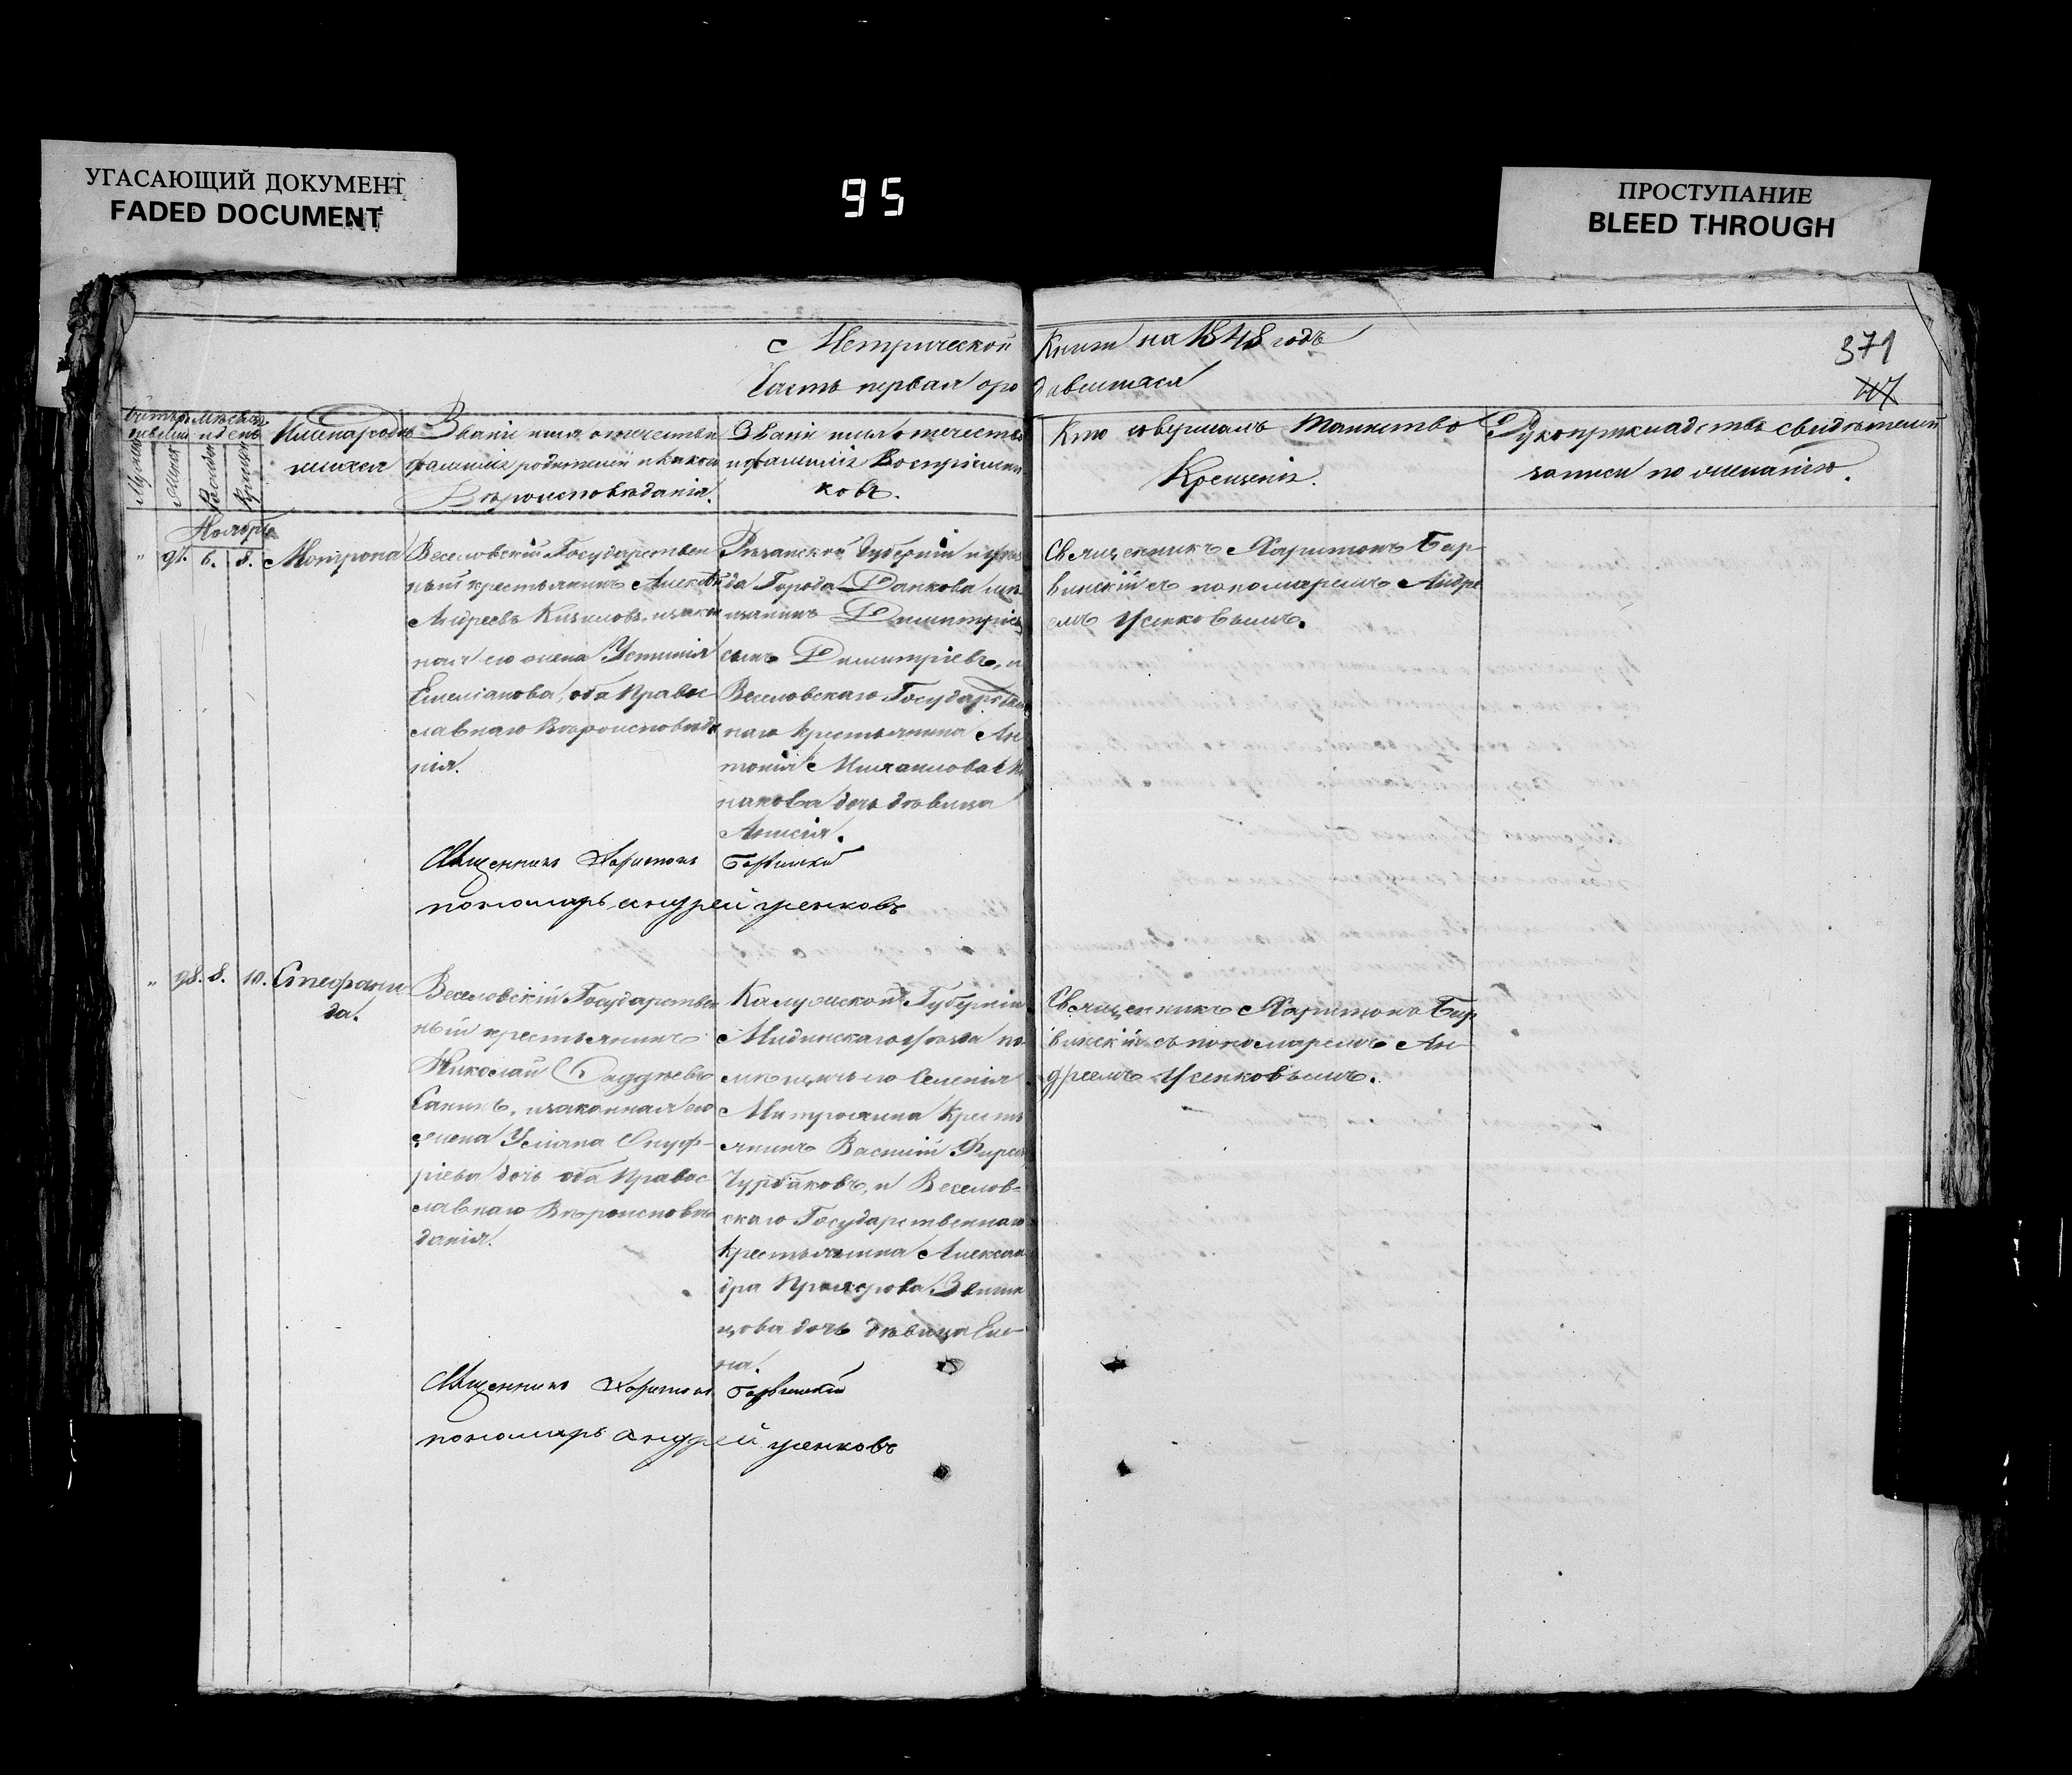 УГАСАЮЩИЙ ДОКУМЕНТ
FADED DOCUMENT
95
ПРОСТУПАНИЕ
BLEED THROUGH
Метрической Книги на 1848 годъ
371
Часть первая о родившихся
117
Имена родив
шихся
Званіе имя отчество и
фамилія родителей и какого
Вѣроисповѣданія.
Званіе имя отчество
и фамилія Воспріемни
ковъ.
Кто совершалъ Таинство
Крещенія.
Рукоприкладство свидѣтелей
записи по желанію.
Мужеска
Женск
Рожденія
Крещенія
Ноябрь
" 97. 6. 8. Мотрона
Веселовскій Государствен
ный крестьянинъ Алексѣй
Андреевъ закон
ная его жена Устинія
Емеліанова, оба Правос
лавнаго Вѣроисповѣда
нія.
Рязанской Губерніи и уѣз
да Города Данкова мѣ
щанинъ Димитрій
сынъ Димитріевъ, и
Веселовскаго Государствен
наго Крестьянина Ан
тонія Михаилова
дочь дѣвица
Анисія.
Священникъ Харитонъ Бар
винскій съ пономаремъ Андре
емъ Усенковымъ.
Священникъ Харитонъ Барвинскій
пономарь андрей усенковъ
" 98. 8. 10. Стефани
да.
Веселовскій Государствен
ный крестьянинъ
Николай Фаддѣевъ
Санинъ, и законная его
жена Уліана Онуф-
ріева дочь оба Правос
лавнаго Вѣроисповѣ
данія.
Калужской Губерніи
Мидинскаго уѣзда по
мѣщичьего Селенія
Митрохина Крест
янинъ Василій Фирсовъ
Чурбаковъ, и Веселов-
скаго Государственнаго
Крестьянина Алексан
дра Прохорова Звягин
цова дочь дѣвица Еле-
на.
Священникъ Харитонъ Бар
винскій съ пономаремъ Ан-
дреемъ Усенковымъ.
Священникъ Харитонъ Барвинскій
пономарь андрей усенковъ